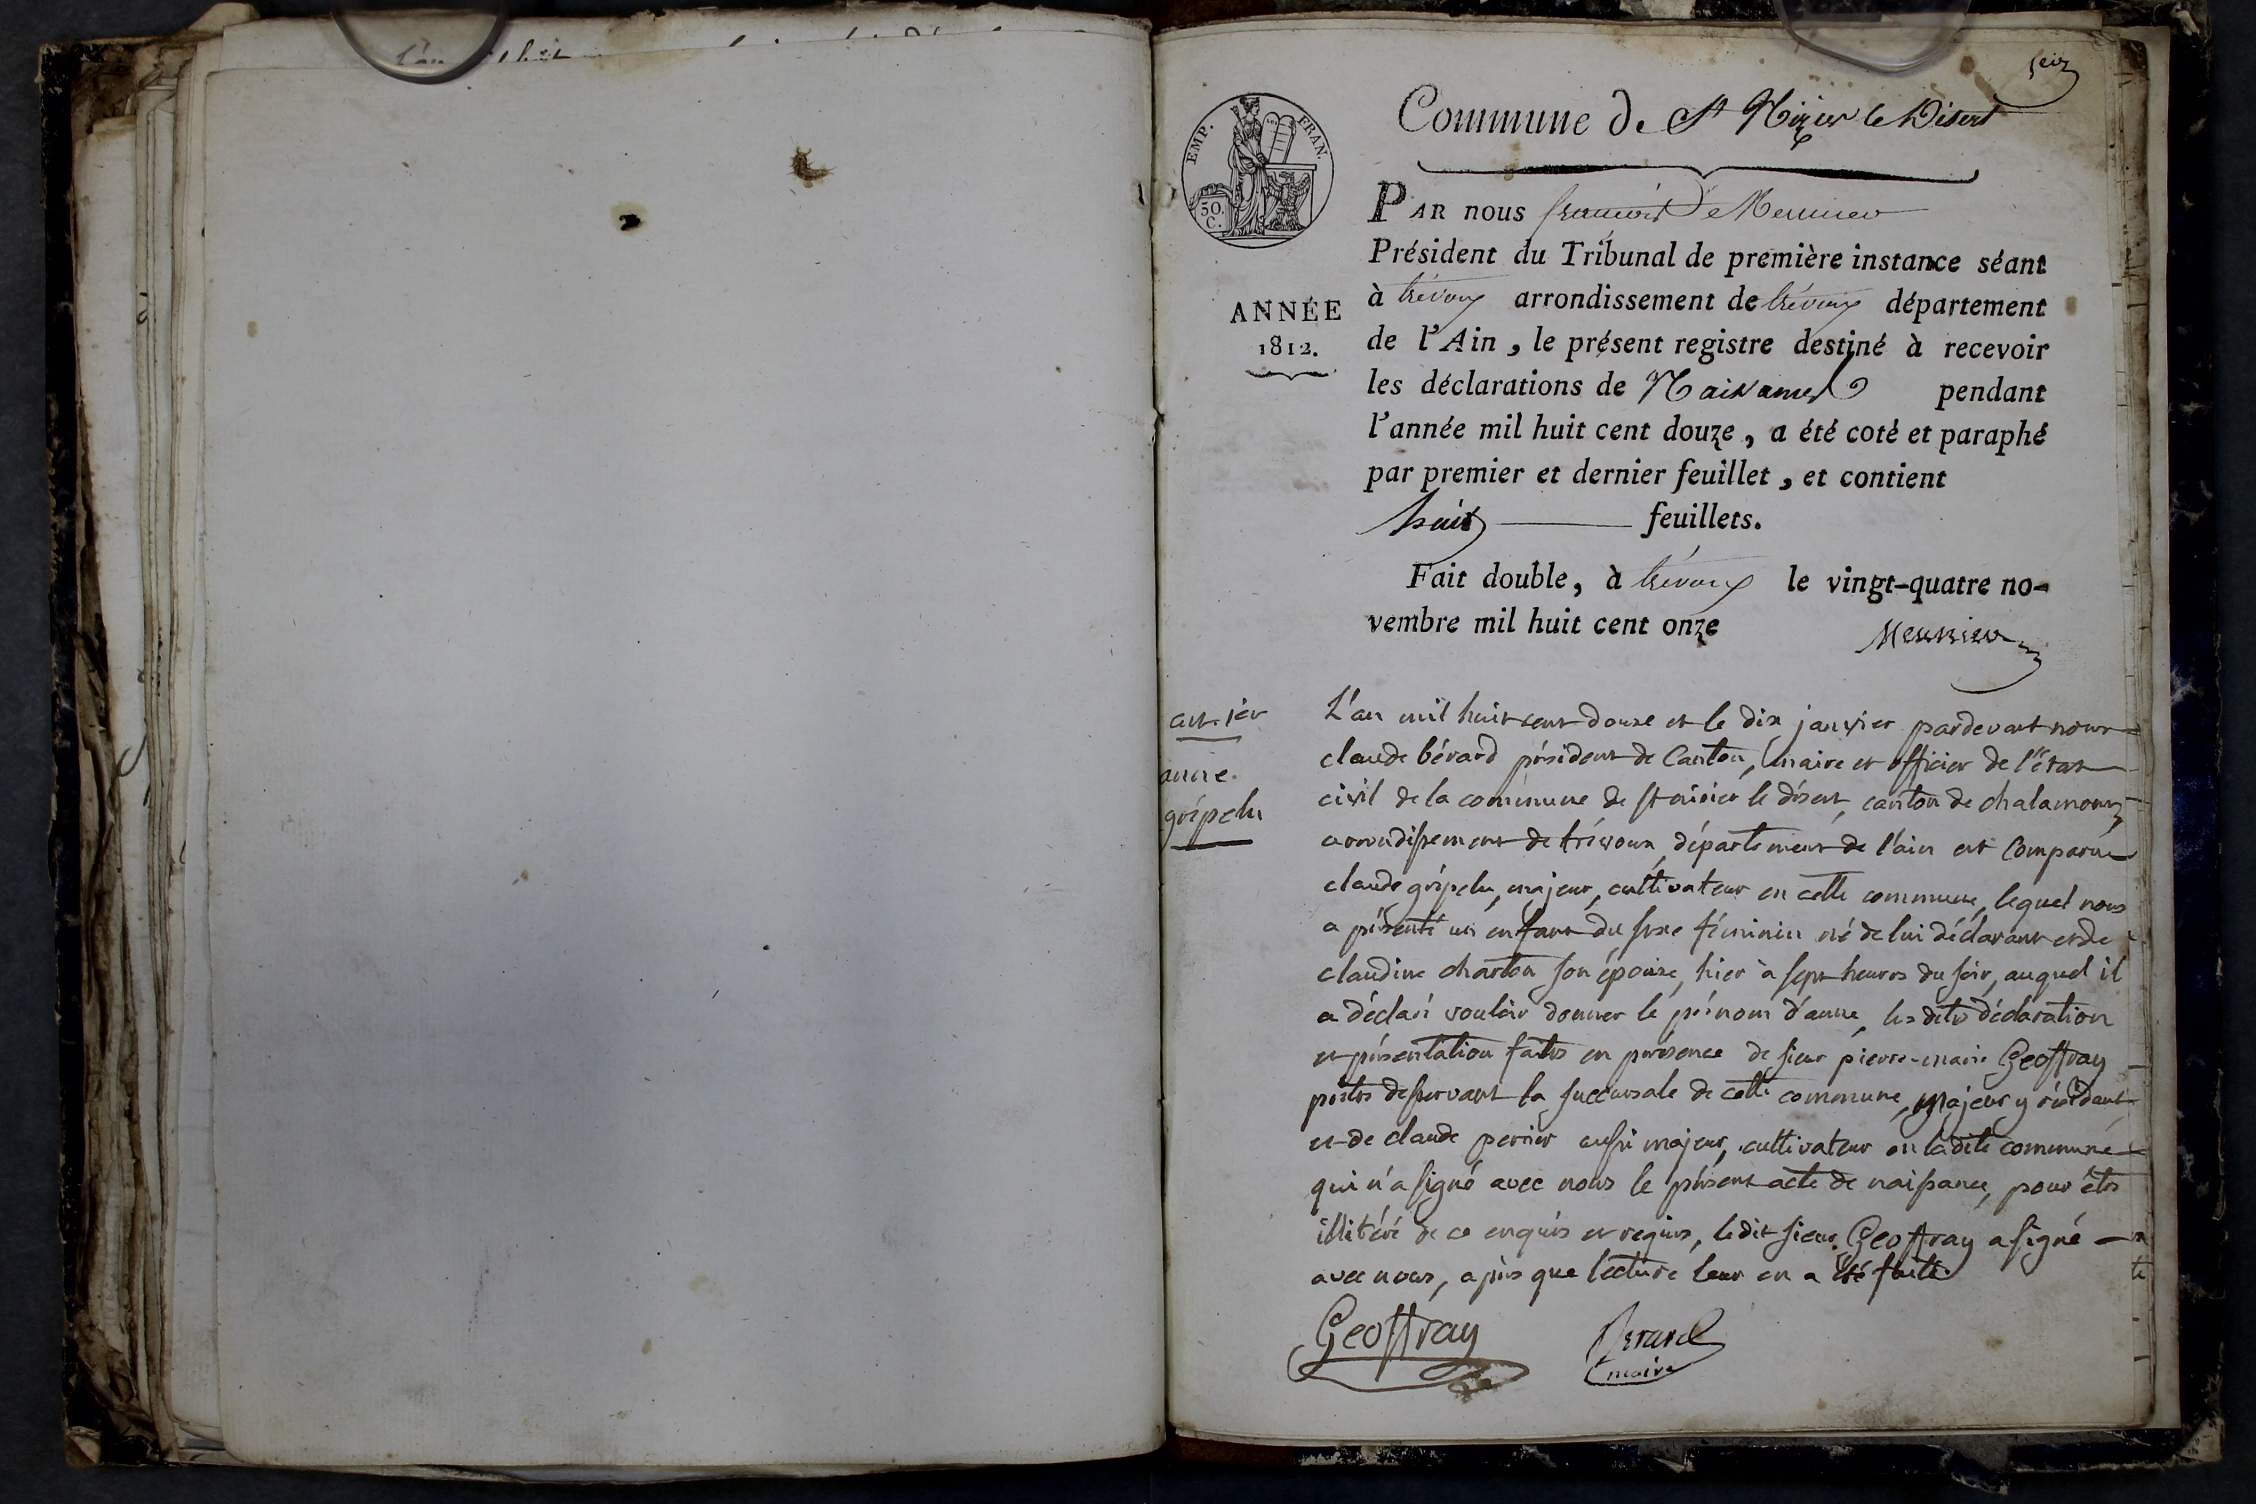 Commune de St Nizier le Désert
EMP. FRAN.
50.
C.
PAR nous françois Meunier
Président du Tribunal de première instance séant
à trévoux arrondissement de trévoux département
ANNÉE
1812.
de l'Ain, le présent registre destiné à recevoir
les déclarations de Naissances pendant
l'année mil huit cent douze, a été coté et paraphé
par premier et dernier feuillet, et contient
huit feuillets.
Fait double, à trévoux le vingt-quatre no-
vembre mil huit cent onze
Meunier
art. 1er
anne
grépelu
L'an mil huit cent douze et le dix janvier pardevant nous
claude bérard président de Canton, maire et officier de l'état
civil de la commune de st nisier le désert, canton de chalamont,
arrondissement de trévoux, département de l'ain est comparu
claude grépelu, majeur, cultivateur en cette commune, lequel nous
a présenté un enfant du sexe féminin né de lui déclarant et de
claudine charton son épouse, hier à sept heures du soir, auquel il
a déclaré vouloir donner le prénom d'anne, les dites déclaration
et présentation faites en présence de sieur pierre-marie Geoffray
prêtre desservant la succursale de cette commune, majeur y résidant
et de claude perrier aussi majeur, cultivateur en ladite commune
qui n'a signé avec nous le présent acte de naissance, pour être
illitéré de ce enquis et requis, ledit sieur Geoffray a signé
avec nous, après que lecture leur en a été faite.
Geoffray
Berard
maire